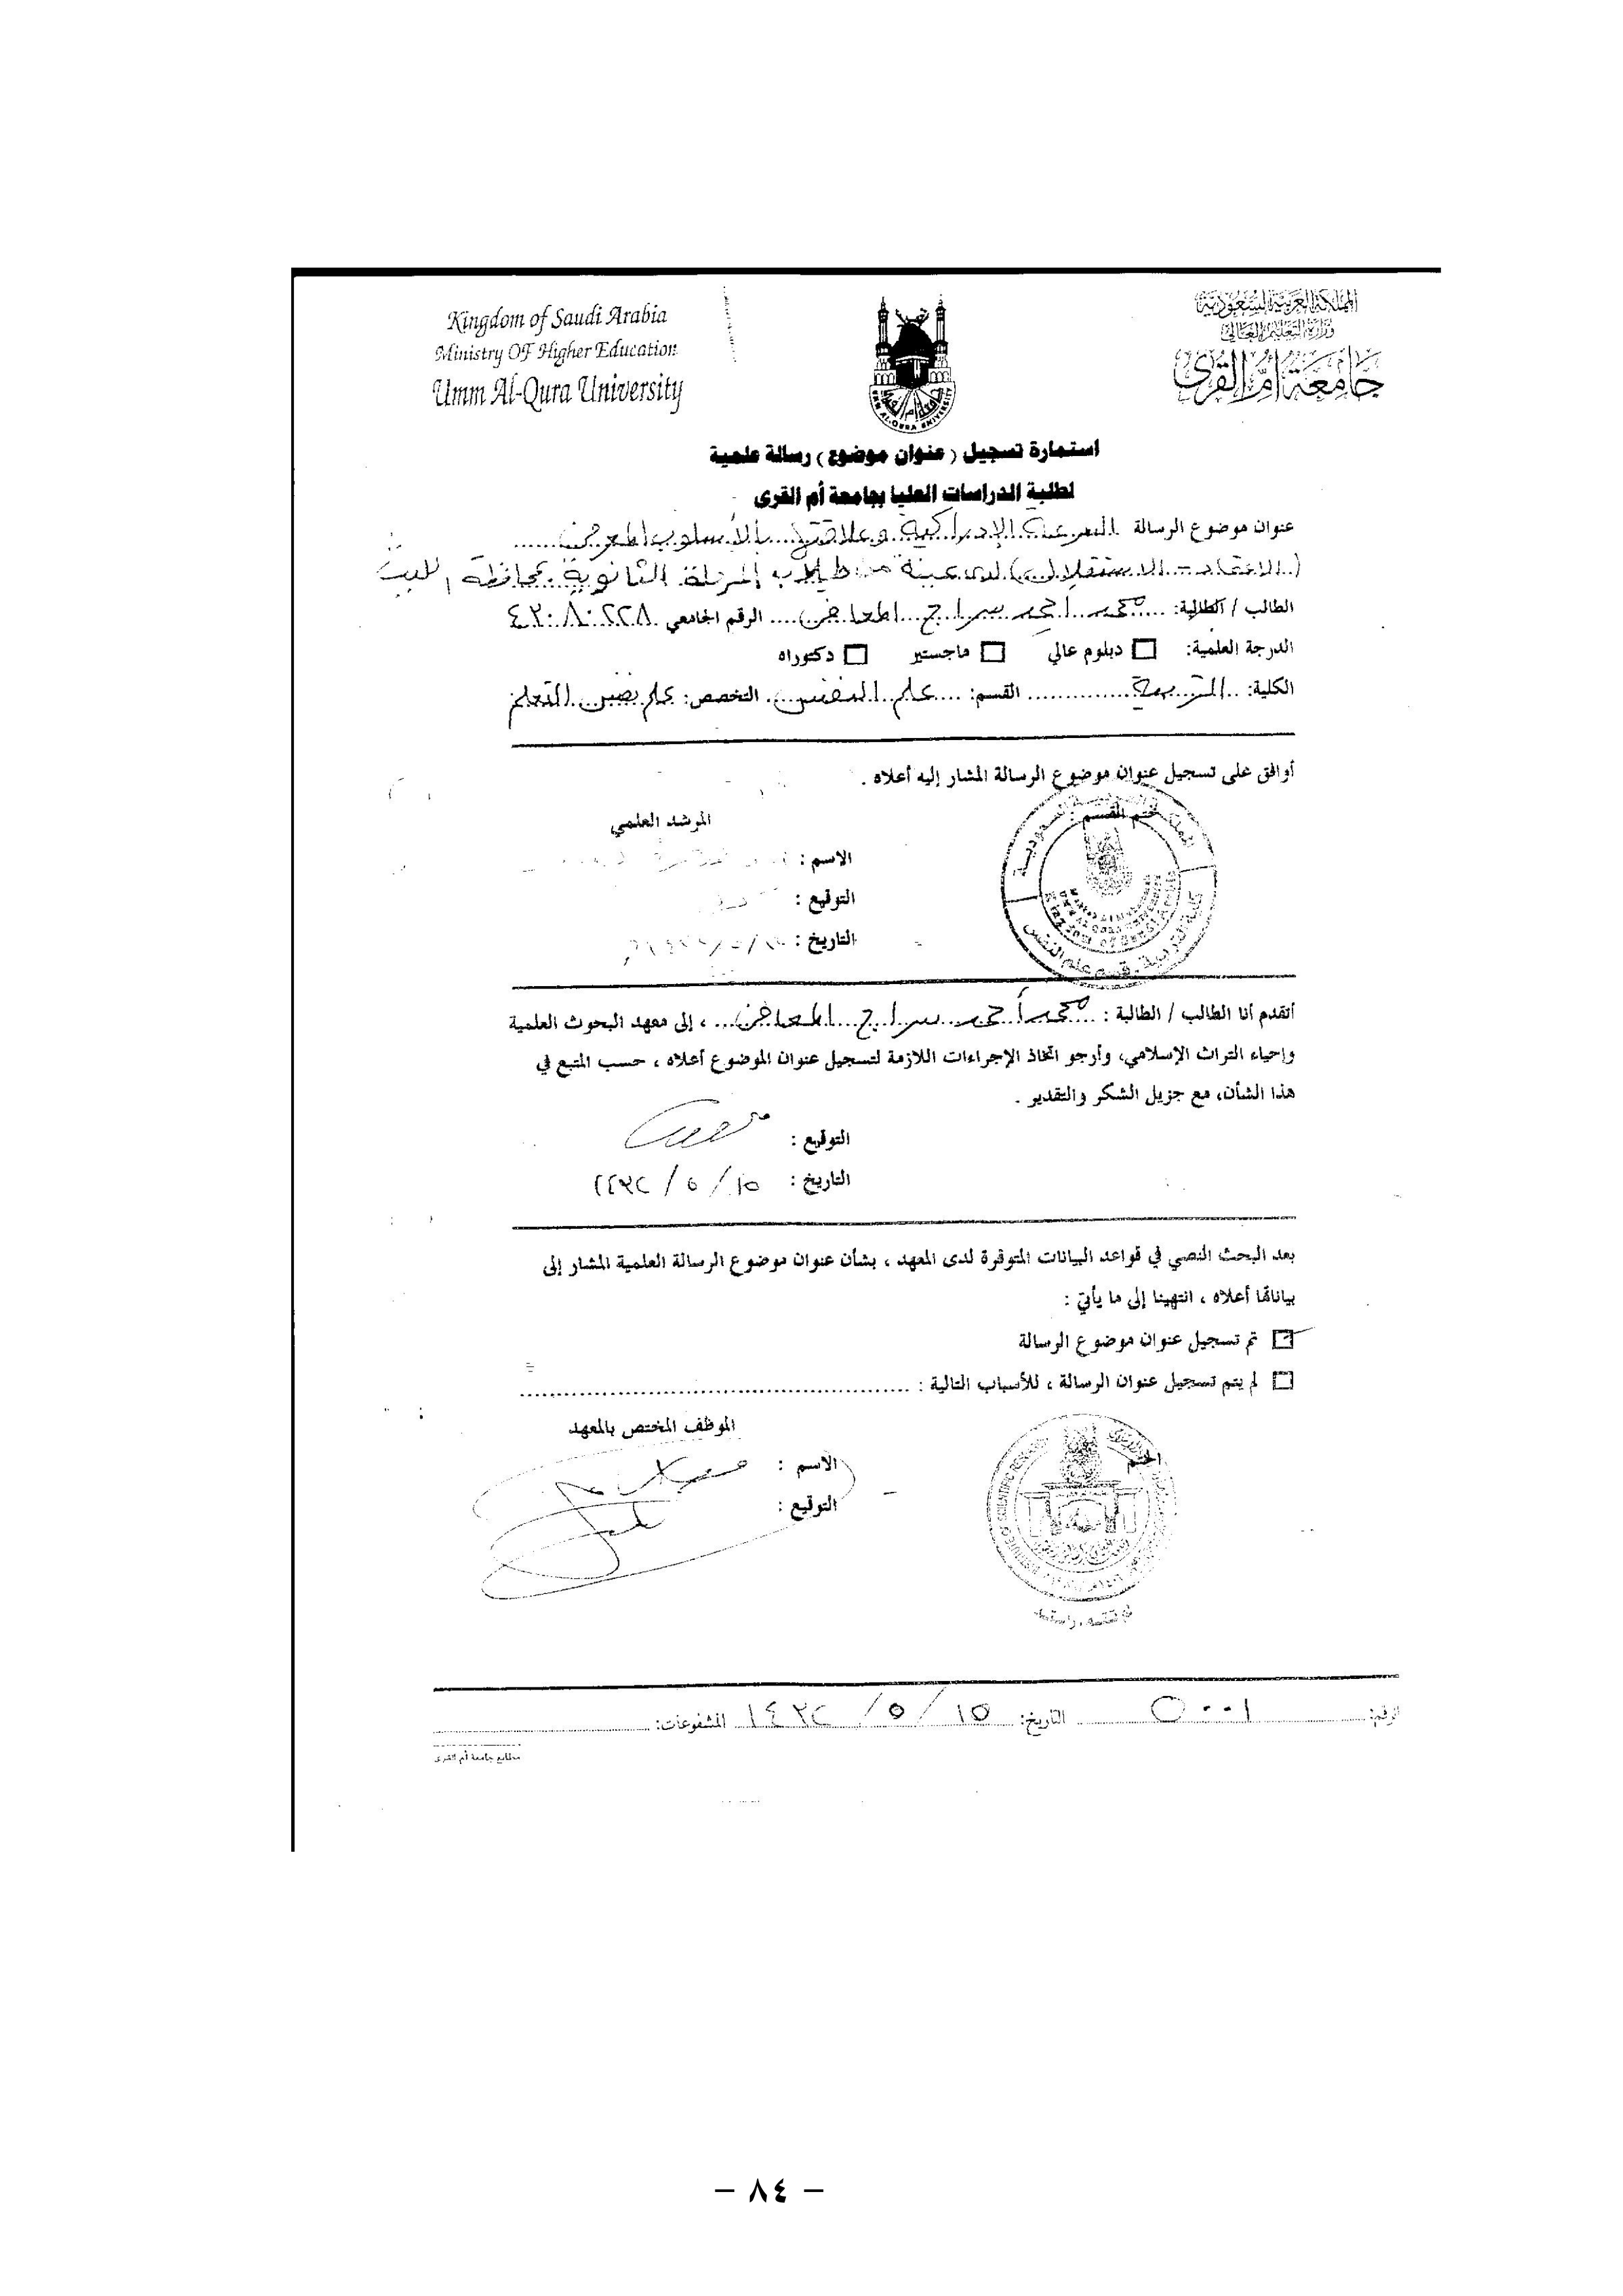 Kingdom of Saudi Arabia
Ministry OF Higher Education
Umm Al-Qura University
المملكة العربية السعودية
وزارة التعليم العالي
جامعة أم القرى
استمارة تسجيل ( عنوان موضوع ) رسالة علمية
لطلبة الدراسات العليا بجامعة أم القرى
عنوان موضوع الرسالة السرعة الإدراكية وعلاقتها بالأسلوب المعرفي
(الاعتماد - الاستقلال) لدى عينة من طلاب المرحلة الثانوية بمحافظة الليث
الطالب / الطالبة: محمد احمد سراج المعافي الرقم الجامعي ٤٢٠٨٠٢٢٨
الدرجة العلمية: دبلوم عالي ماجستير دكتوراه
الكلية: التربية القسم: علم النفس التخصص: علم نفس التعلم
أوافق على تسجيل عنوان موضوع الرسالة المشار إليه أعلاه .
ختم القسم :
المرشد العلمي
الاسم :
التوقيع :
التاريخ :
كلية التربية - قسم علم النفس
أتقدم أنا الطالب / الطالبة : محمد أحمد سراج المعافي ، إلى معهد البحوث العلمية
وإحياء التراث الإسلامي، وأرجو اتخاذ الإجراءات اللازمة لتسجيل عنوان الموضوع أعلاه ، حسب المتبع في
هذا الشأن، مع جزيل الشكر والتقدير .
التوقيع :
التاريخ : ١٥ / ٥ /
بعد البحث النصي في قواعد البيانات المتوفرة لدى المعهد ، بشأن عنوان موضوع الرسالة العلمية المشار إلى
بياناتها أعلاه ، انتهينا إلى ما يأتي :
تم تسجيل عنوان موضوع الرسالة
لم يتم تسجيل عنوان الرسالة ، للأسباب التالية :
الموظف المختص بالمعهد
الختم
الاسم :
التوقيع :
الرقم: ٥٠٠١ التاريخ: ١٥ / ٥ / ١٤٣٢ المشفوعات:
مطابع جامعة أم القرى
– ٨٤ –